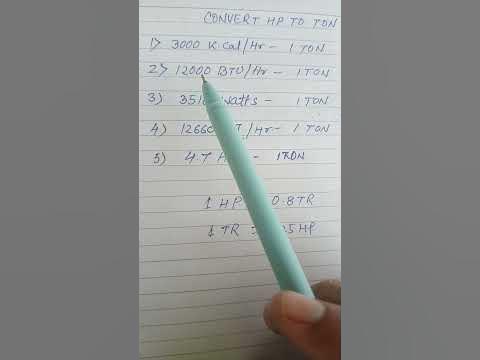 CONVERT HP TO TON
1) 3000 K Cal/Hr - 1 TON
2) 12000 BTU/Hr - 1 TON
3) 351 Watts - 1 TON
4) 12660 /Hr - 1 TON
5) 4.7 - 1 TON
1 HP 0.8 TR
1 TR HP